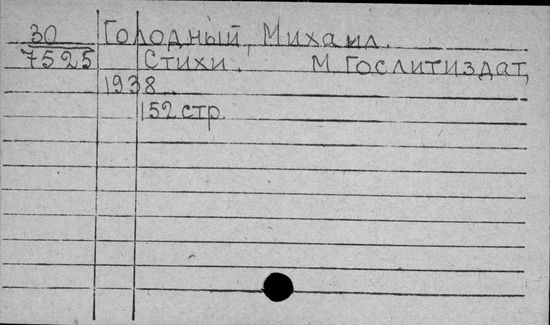 30 Голодный, Михаил.
7525 Стихи. М. Гослитиздат,
1938
152 стр.